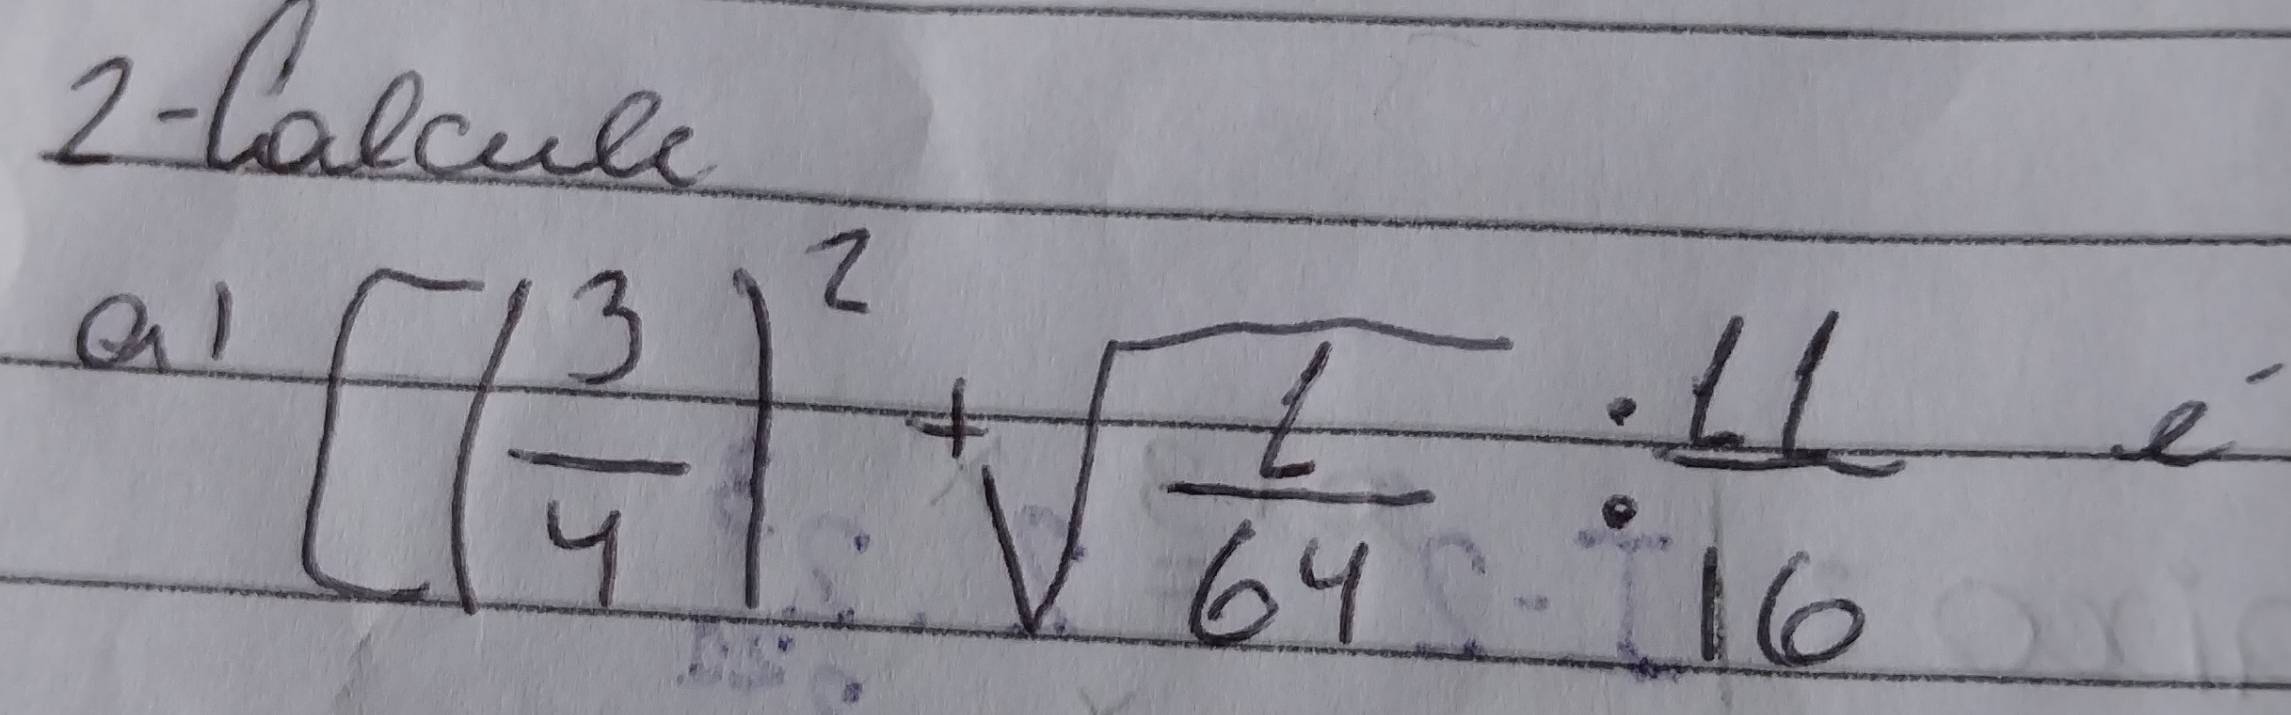 2-Calcule
a) [(3/4)² + √(1/64) : 11/16 é